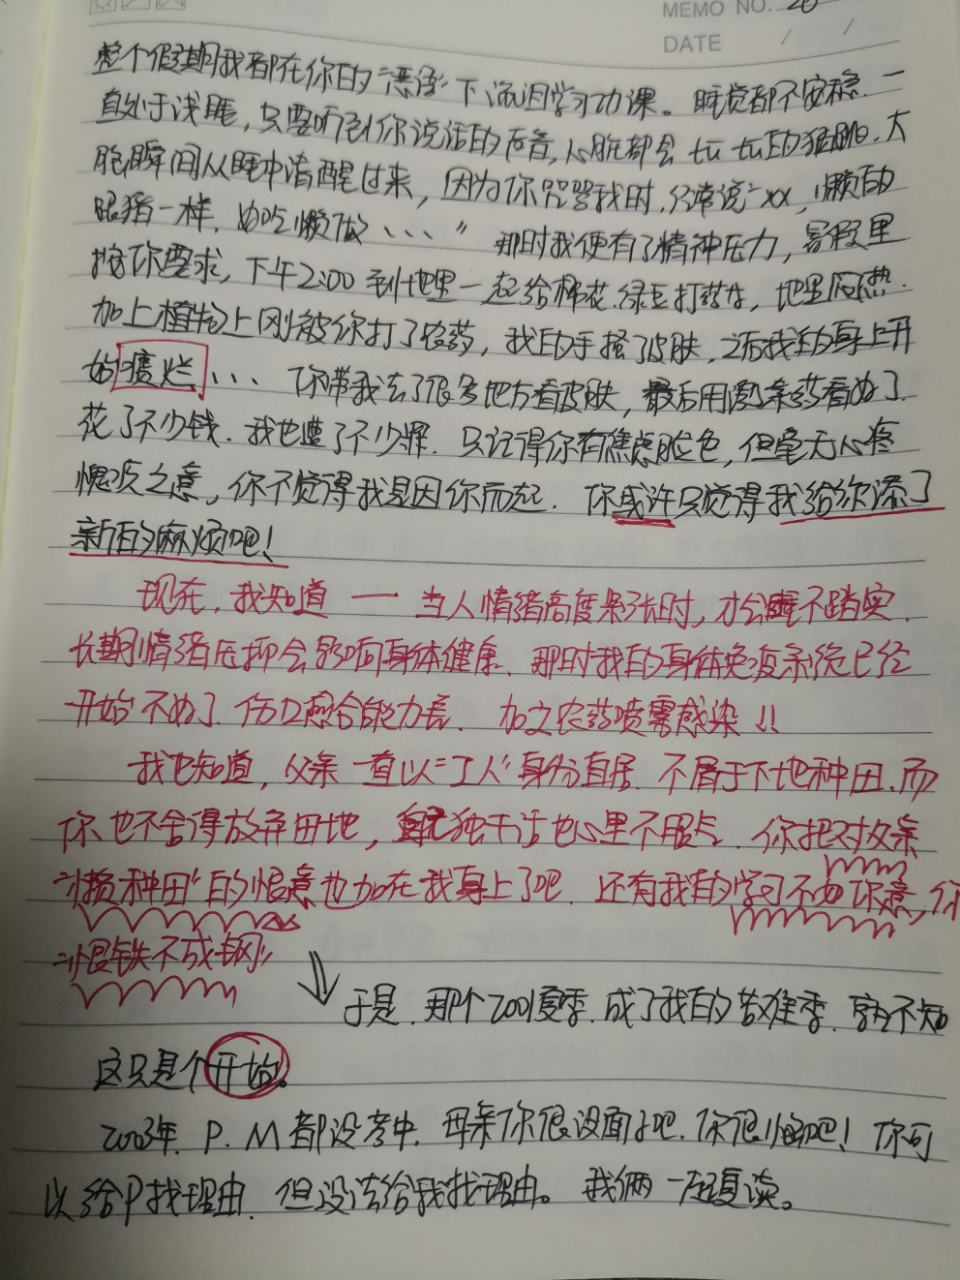 MEMO NO. 26
DATE / /
整个假期我都在你的“恶语”下流泪学习功课。睡觉都不安稳.一
直处于浅眠,只要听到你说话的声音,心脏都会 tu tu的狂跳.大
脑瞬间从睡中清醒过来,因为你咒骂我时,经常说“xx,懒的
跟猪一样,好吃懒做、、、” 那时我便有了精神压力,暑假里
按你要求,下午2:00到地里一起给棉花.绿豆打药水,地里闷热.
加上植物上刚被你打了农药,我的手搔了皮肤,之后我的身上开
始溃烂、、、 你带我去了很多地方看皮肤,最后用激素药看好了.
花了不少钱.我也遭了不少罪.只记得你有焦虑脸色,但毫无心疼
愧疚之意,你不觉得我是因你而起.你或许只觉得我给你添了
新的麻烦吧!
现在,我知道 — 当人情绪高度紧张时,才会睡不踏实.
长期情绪压抑会影响身体健康.那时我的身体免疫系统已经
开始不好了.伤口愈合能力差.加之农药喷雾感染!!
我也知道,父亲一直以“工人”身份自居.不屑于下地种田、而
你也不舍得放弃田地,自己独干活也心里不服气.你把对父亲
“懒种田”的恨意也加在我身上了吧.还有我的学习不如你意,你
“恨铁不成钢”
于是.那个2001夏季.成了我的苦难季.孰不知
这只是个开始。
2003年.P.M都没考中.母亲你很没面子吧.你很恼吧!你可
以给P找理由.但没法给我找理由。我俩一起复读。